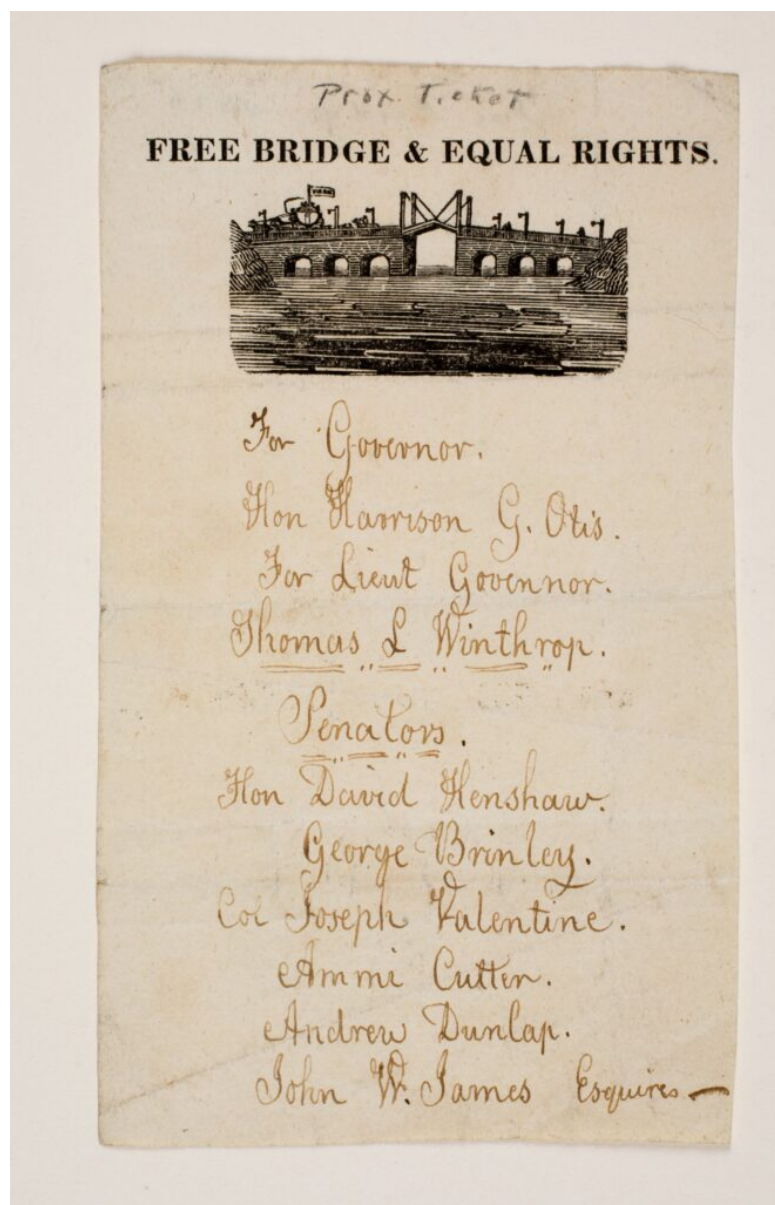 Prox. Ticket
FREE BRIDGE & EQUAL RIGHTS.
For Governor.
Hon Harrison G. Otis.
For Lieut Governnor.
Thomas L Winthrop.
Senators.
Hon David Henshaw.
George Brinley.
Col Joseph Valentine.
Ammi Cutter.
Andrew Dunlap.
John W. James Esquires